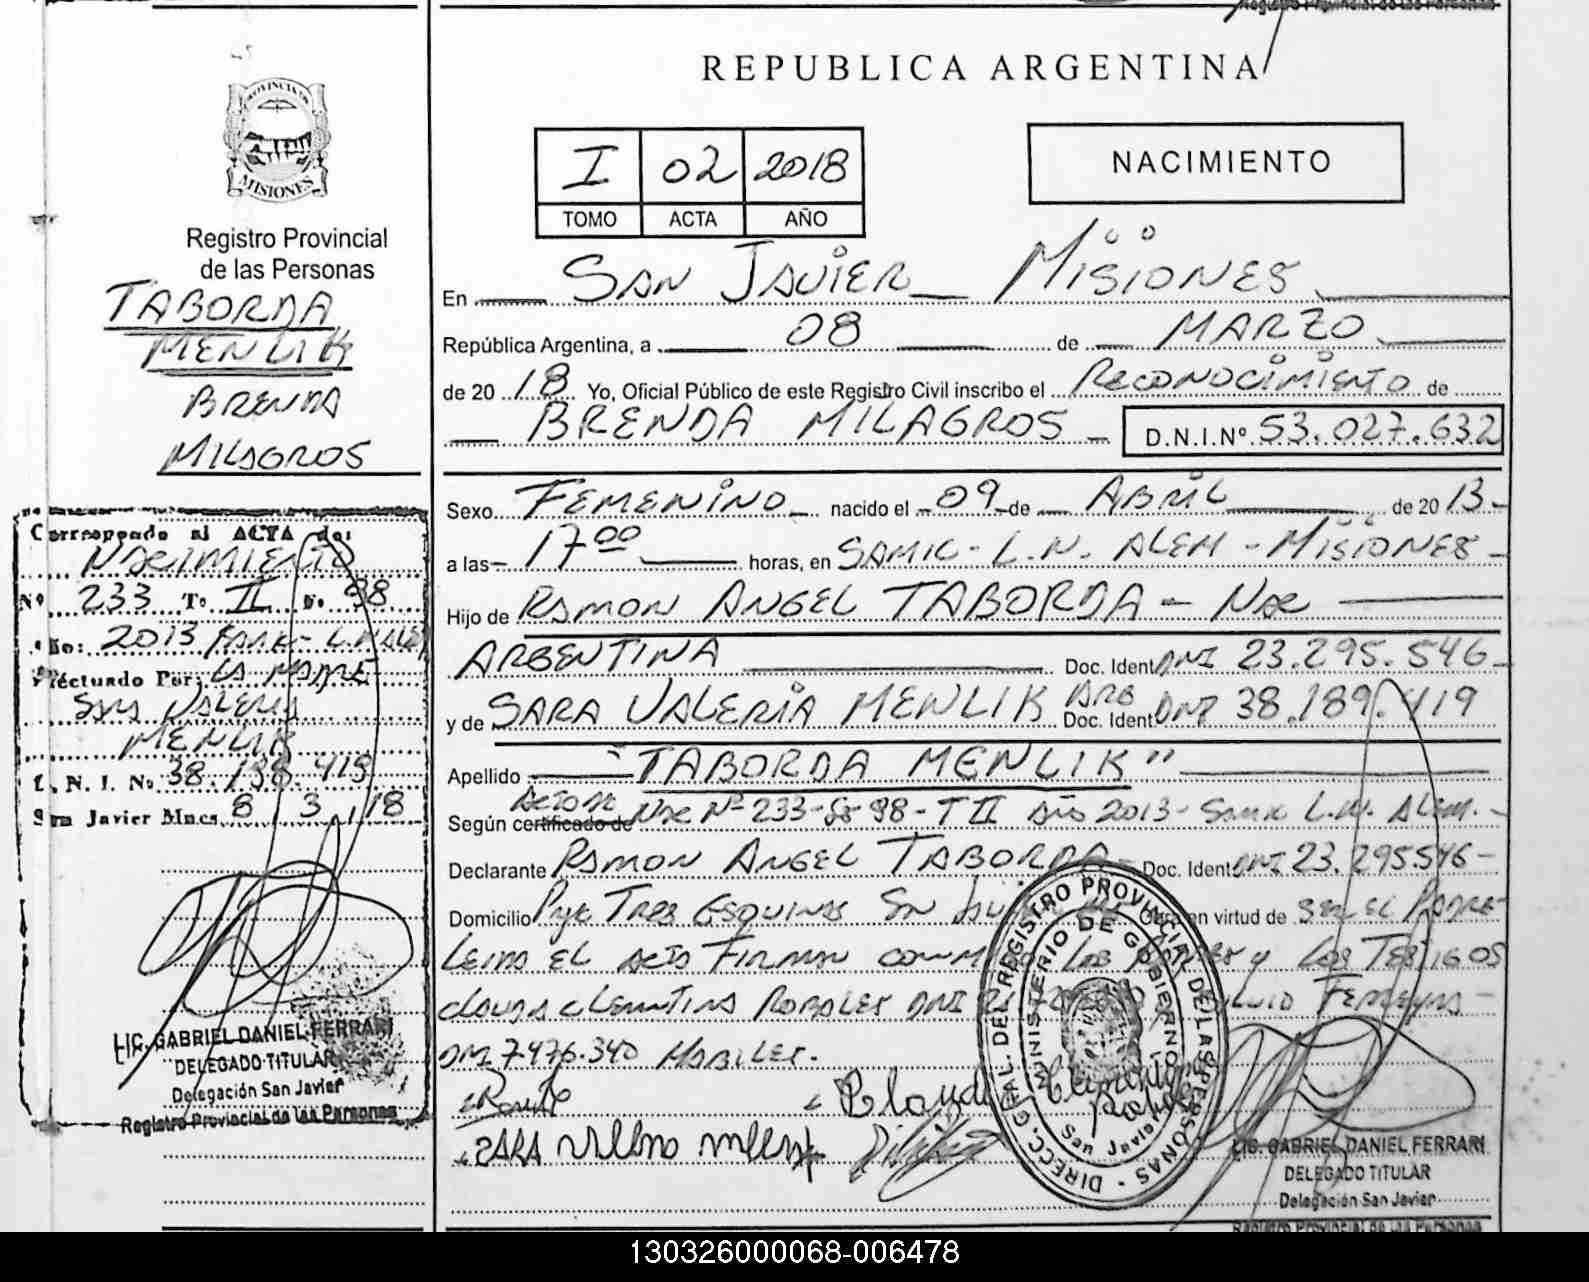 Registro Provincial de las Personas
REPUBLICA ARGENTINA
PROVINCIA DE
MISIONES
Registro Provincial
de las Personas
TABORDA
MENLIK
BRENDA
MILAGROS
I 02 2018
TOMO ACTA AÑO
NACIMIENTO
En SAN JAVIER MISIONES
República Argentina, a 08 de MARZO
de 20 18 Yo, Oficial Público de este Registro Civil inscribo el RECONOCIMIENTO de
BRENDA MILAGROS D.N.I.Nº 53.027.632
Sexo FEMENINO nacido el 09 de ABRIL de 20 13-
a las 17 00 horas, en SAMIC - L.N. ALEM - MISIONES -
Hijo de RAMON ANGEL TABORDA - NAC
ARGENTINA Doc. Ident DNI 23.295.546-
y de SARA VALERIA MENLIK ARG Doc. Ident DNI 38.189.419
Apellido "TABORDA MENLIK"
Según certificado de Acta de NAC Nº 233-Fº 98-T II AÑO 2013- SAMIC L.N. ALEM.-
Declarante RAMON ANGEL TABORDA- Doc. Ident DNI 23.295.546-
Domicilio Pje TRES ESQUINAS SN Obra en virtud de SER EL PADRE-
LEIDA EL ACTA FIRMAN LOS y LOS TESTIGOS
CLEMENTINA DNI
DNI 7.476.340 HABILES.-
SARA
Corresponde al ACTA de:
NACIMIENTO
Nº 233 Tº II Fº 98
Año: 2013 SAMIC- L.N.ALEM
Efectuado Por: LA MADRE
SARA VALERIA
MENLIK
D. N. I. Nº 38.
San Javier Mnes. 8 3 18
LIC. GABRIEL DANIEL FERRARI
DELEGADO TITULAR
Delegación San Javier
Registro Provincial de las Personas
DIRECC. GRAL. DEL REGISTRO PROVINCIAL DE LAS PERSONAS
MINISTERIO DE GOBIERNO
San Javier
LIC. GABRIEL DANIEL FERRARI
DELEGADO TITULAR
Delegación San Javier
Registro Provincial de las Personas
130326000068-006478